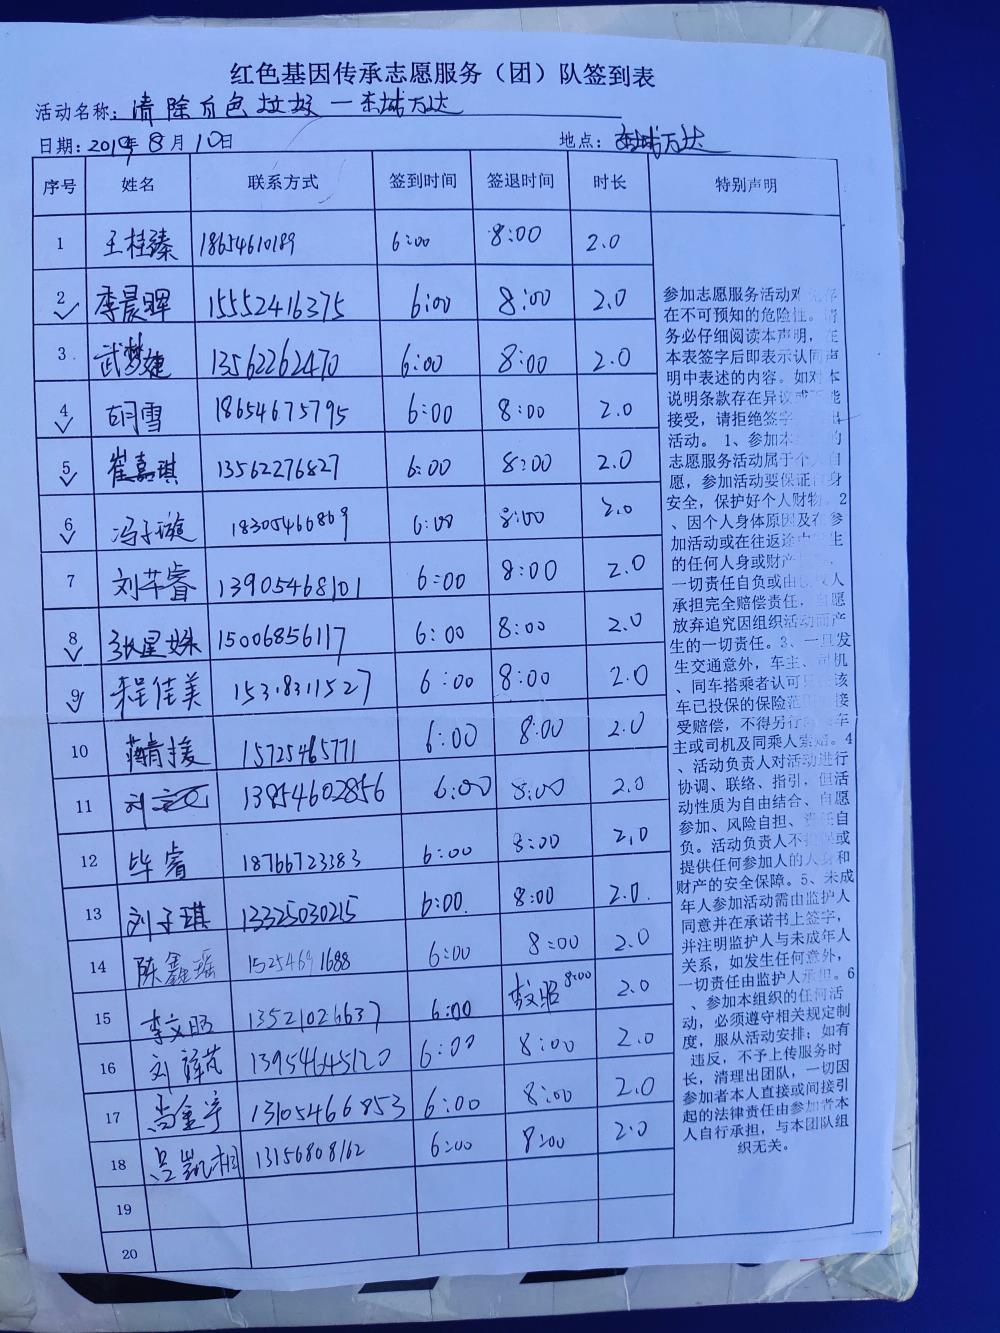 红色基因传承志愿服务（团）队签到表
活动名称：清除白色垃圾—东城万达
日期：2019年8月10日 地点：东城万达
序号 姓名 联系方式 签到时间 签退时间 时长 特别声明
1 王桂臻 18654610189 6:00 8:00 2.0
2 李晨晖 15552416375 6:00 8:00 2.0
3 武梦婕 13562262470 6:00 8:00 2.0
4 胡雪 18654675795 6:00 8:00 2.0
5 崔嘉琪 13562276827 6:00 8:00 2.0
6 冯子璇 18305466869 6:00 8:00 2.0
7 刘芊睿 13905468101 6:00 8:00 2.0
8 张星姝 15006856117 6:00 8:00 2.0
9 程佳美 15318311527 6:00 8:00 2.0
10 15725465771 6:00 8:00 2.0
11 刘 13954602856 6:00 8:00 2.0
12 毕睿 18766723383 6:00 8:00 2.0
13 刘子琪 13325030215 6:00 8:00 2.0
14 陈鑫瑶 15254691688 6:00 8:00 2.0
15 李文昭 13521026637 6:00 李文昭 8:00 2.0
16 刘 13954645120 6:00 8:00 2.0
17 尚金宇 13105466853 6:00 8:00 2.0
18 吴凯相 13156808162 6:00 8:00 2.0
19
20
参加志愿服务活动难免存
在不可预知的危险性。请
务必仔细阅读本声明，在
本表签字后即表示认同声
明中表述的内容。如对本
说明条款存在异议或不能
接受，请拒绝签字
活动。1、参加本 的
志愿服务活动属于个人自
愿，参加活动要保证自身
安全，保护好个人财物。2
、因个人身体原因及在参
加活动或在往返途中发生
的任何人身或财产
一切责任自负或由 人
承担完全赔偿责任，自愿
放弃追究因组织活动而产
生的一切责任。3、一旦发
生交通意外，车主、司机
、同车搭乘者认可只 该
车已投保的保险范围 接
受赔偿，不得另行 车
主或司机及同乘人索赔。4
、活动负责人对活动进行
协调、联络、指引，但活
动性质为自由结合、自愿
参加、风险自担、责任自
负。活动负责人不担保或
提供任何参加人的人身和
财产的安全保障。5、未成
年人参加活动需由监护人
同意并在承诺书上签字，
并注明监护人与未成年人
关系，如发生任何意外，
一切责任由监护人承担。6
、参加本组织的任何活
动，必须遵守相关规定制
度，服从活动安排；如有
违反，不予上传服务时
长，清理出团队，一切因
参加者本人直接或间接引
起的法律责任由参加者本
人自行承担，与本团队组
织无关。